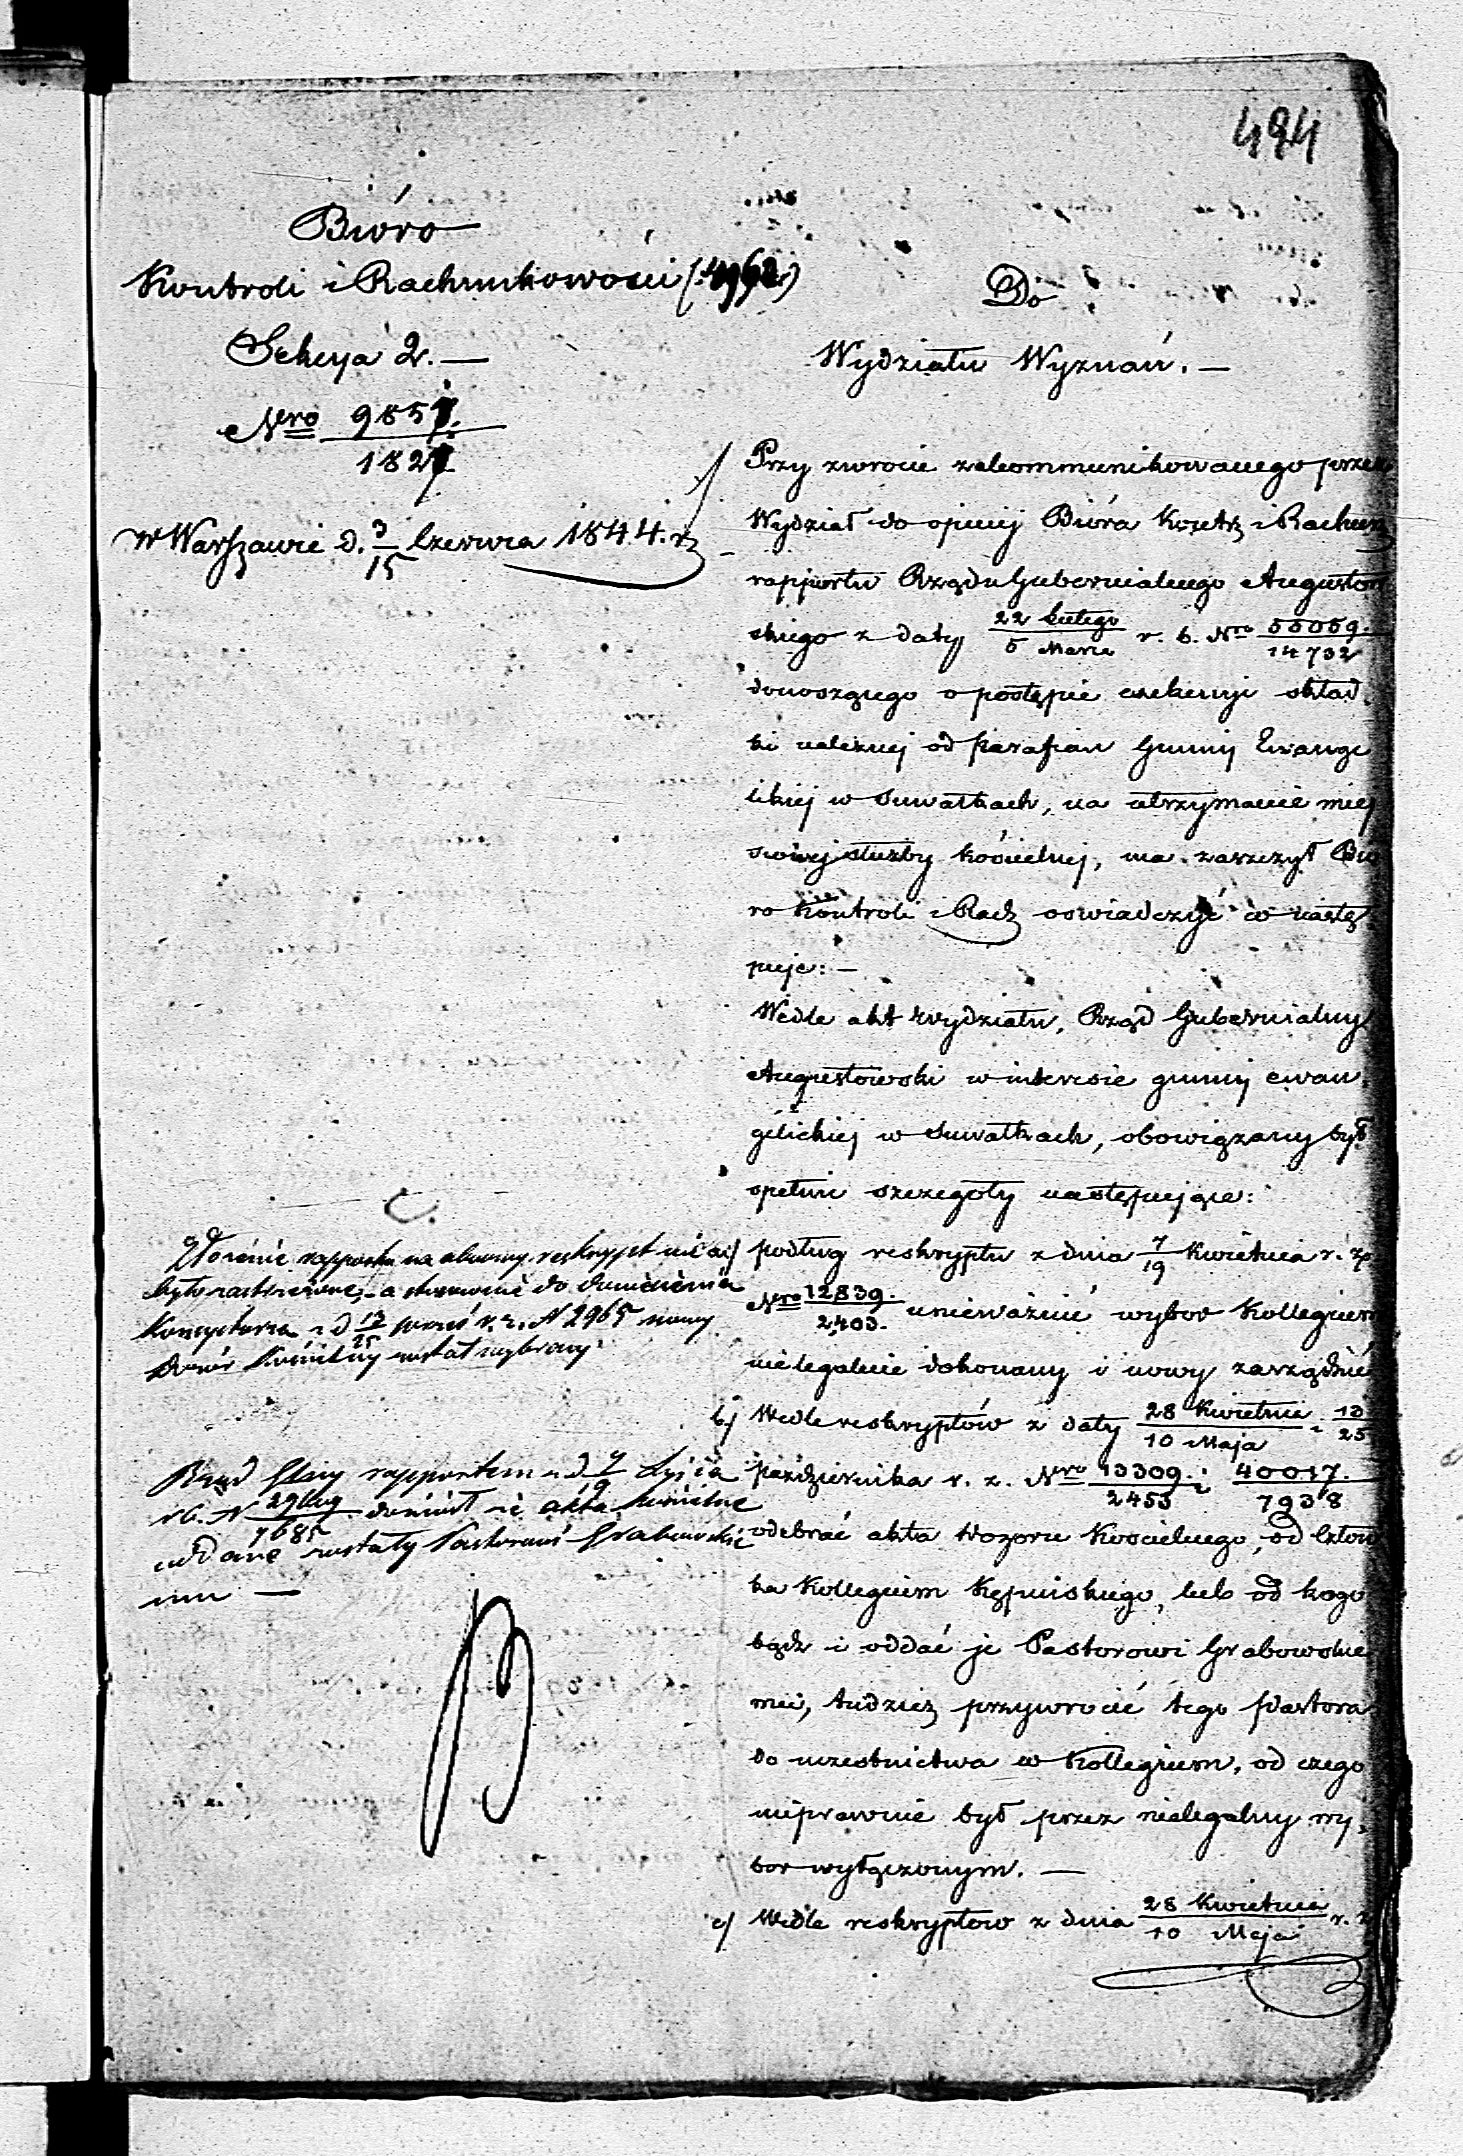 494
Bióro
Kontroli i Rachunkowości (4962)
Sekcya 2. —
Nro 9857.
1827
w Warszawie d. 3/15 Czerwca 1844. r.
Do
Wydziału Wyznań. —
Przy zwrocie zakommunikowanego przez
Wydział do opinij Bióra Kontr. i Rachun.
rapportu Rządu Gubernialnego Augustow
skiego z daty 22 Lutego / 5 Marca r. b. Nro 55059. / 14732
donoszącego o postępie exekucyi skład
ki należnej od parafian Gminy Ewange
lickiej w Suwałkach, na utrzymanie miej
scowej służby kościelnej, ma zaszczyt Biu
ro Kontroli i Rach. oświadczyć co nastę
puje: —
Wedle akt wydziału, Rząd Gubernialny
Augustowski w interesie gminy ewan
gelickiej w Suwałkach, obowiązany był
spełnić szczegóły następujące:
a) podług reskryptu z dnia 7/19 Kwietnia r. z.
Nro 12839. / 2403. unieważnić wybor Kollegium
nielegalnie dokonany i nowy zarządzić
b) Wedle reskryptów z daty 28 Kwietnia / 10 Maja i 13/25
października r. z. Nro 13309. / 2453 i 40017. / 7938
odebrać akta Dozoru Kościelnego, od Człon
ka Kollegium Kępińskiego, lub od kogo
bądź i oddać je Pastorowi Grabowskie
mu, tudzież przywrócić tego Pastora
do uczestnictwa w Kollegium, od czego
nieprawnie był przez nielegalny wy
bor wyłączonym. —
c) Wedle reskryptow z dnia 28 Kwietnia / 10 Maja r. z.
rapportu na obecny reskrypt nie
było a stosownie do doniesienia
Konsystorza z d 13/25 r. z. N 2965 nowy
Dozór Kościelny został wybrany.
Rząd Gbny rapportem z d 7
r b. N 29449 / 7685 doniósł że akta kościelne
oddane zostały Pastorowi Grabowskie
mu —